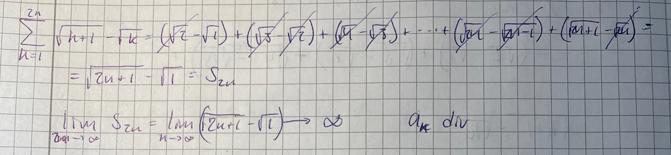 \sum_{k=1}^{2n} \sqrt{k+1} - \sqrt{k} = (\sqrt{2} - \sqrt{1}) + (\sqrt{3} - \sqrt{2}) + (\sqrt{4} - \sqrt{3}) + \cdots + (\sqrt{2n} - \sqrt{2n-1}) + (\sqrt{2n+1} - \sqrt{2n}) =
= \sqrt{2n+1} - \sqrt{1} = S_{2n}
\lim S_{2n} = \lim_{n \to \infty} (\sqrt{2n+1} - \sqrt{1}) \longrightarrow \infty a_k div